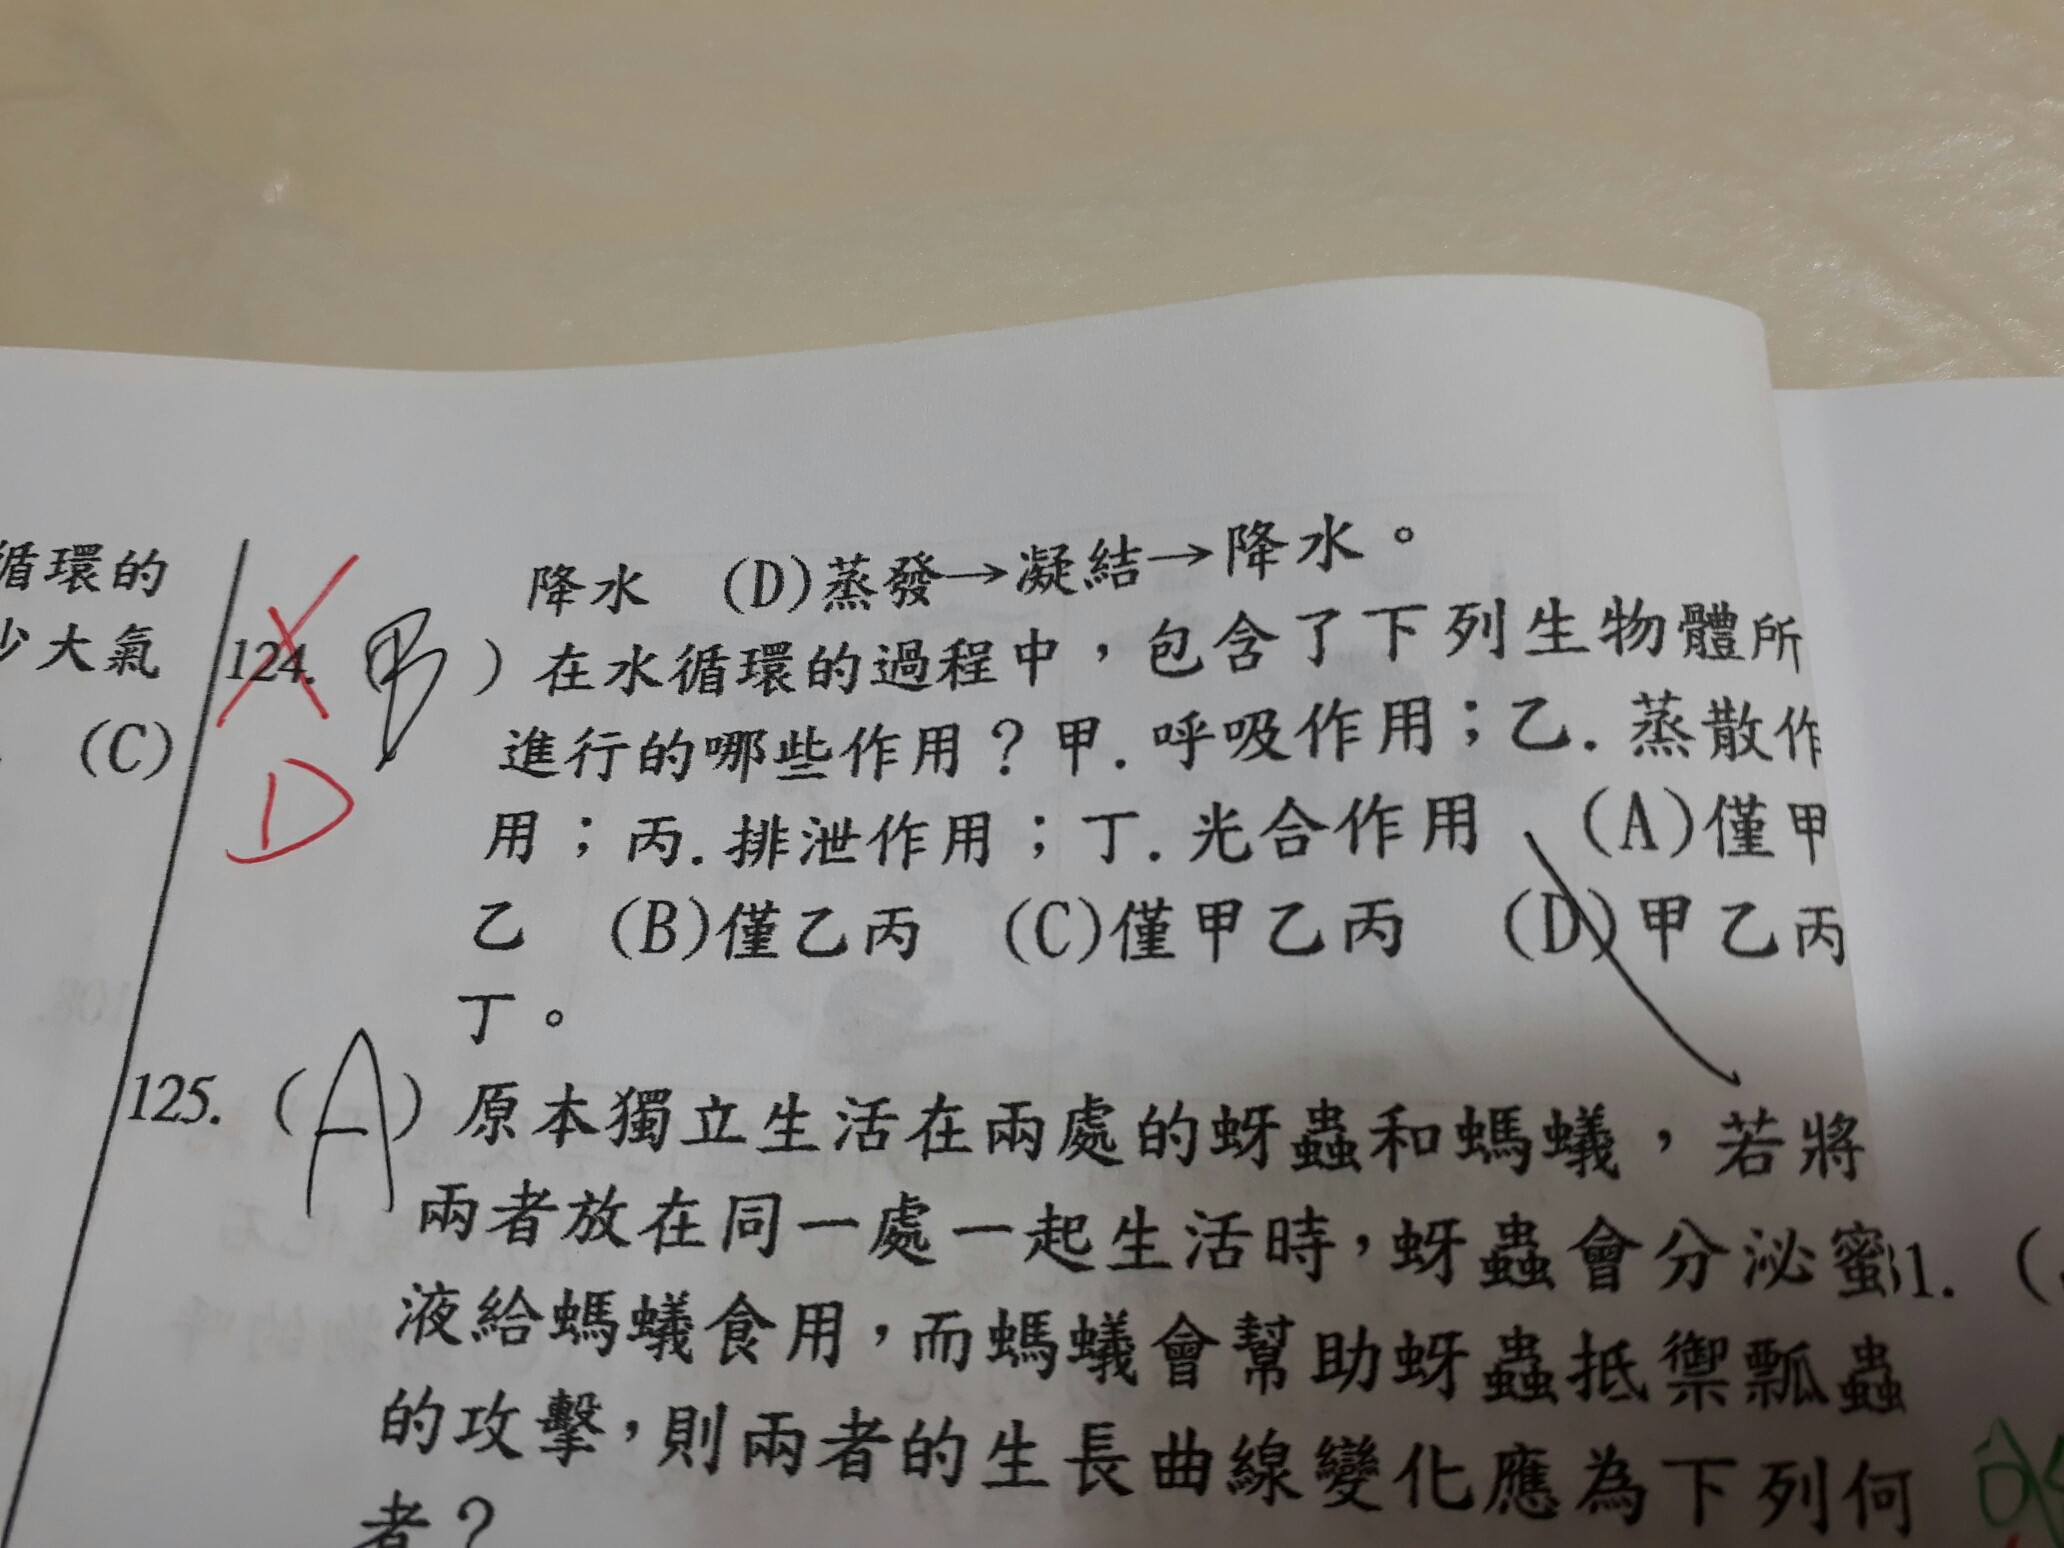 循環的
少大氣
(C)
降水 (D)蒸發→凝結→降水。
124. B )在水循環的過程中，包含了下列生物體所
D
進行的哪些作用？甲. 呼吸作用；乙. 蒸散作
用；丙. 排泄作用；丁. 光合作用 (A)僅甲
乙 (B)僅乙丙 (C)僅甲乙丙 (D)甲乙丙
丁。
125. (A)原本獨立生活在兩處的蚜蟲和螞蟻，若將
兩者放在同一處一起生活時，蚜蟲會分泌蜜
液給螞蟻食用，而螞蟻會幫助蚜蟲抵禦瓢蟲
的攻擊，則兩者的生長曲線變化應為下列何
者？
1. (